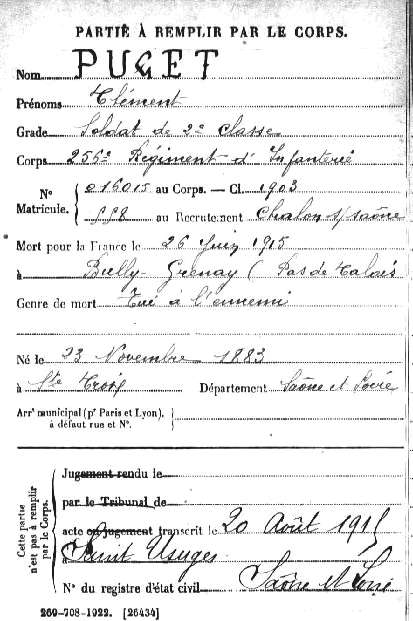 PARTIE À REMPLIR PAR LE CORPS.
Nom PUGET
Prénoms Clément
Grade Soldat de 2e Classe
Corps 256e Régiment d'Infanterie
N° Matricule. 016015 au Corps. — Cl. 1903
558 au Recrutement Chalon s/saône
Mort pour la France le 26 Juin 1915
à Bully-Grenay (Pas de Calais
Genre de mort Tué a l'ennemi
Né le 23 Novembre 1883
à Ste Croix Département Saône et Loire
Arrt municipal (pr Paris et Lyon),
à défaut rue et N°.
Cette partie n'est pas à remplir par le Corps.
Jugement rendu le
par le Tribunal de
acte ou jugement transcrit le 20 Août 1915
à Saint Usuges
N° du registre d'état civil Saône et Loire
260-708-1922. [26434]